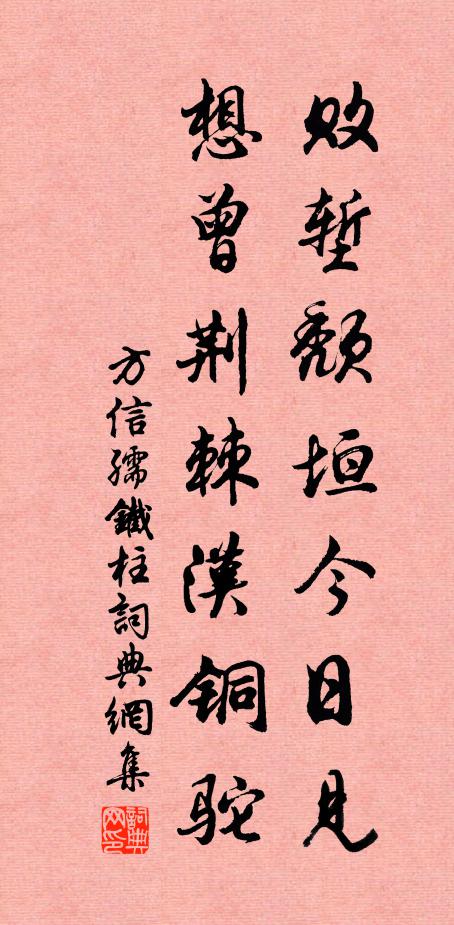 败堑颓垣今日见
想曾荆棘漢铜驼
方信孺鐵柱詞典網集
詞典网印